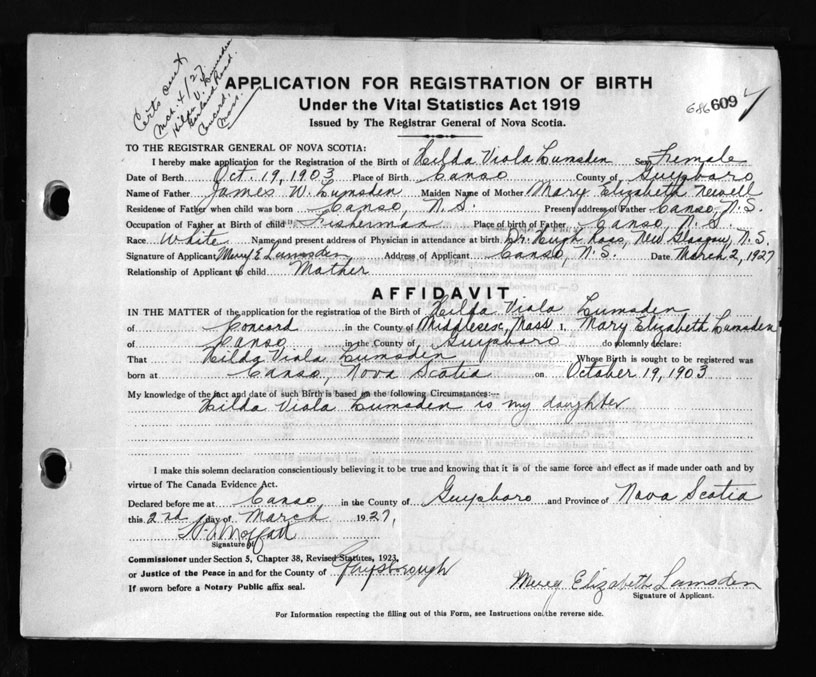 Certs sent
Mar. 4/27
Hilda V. Lumsden
Road,
Concord,
Mass.
APPLICATION FOR REGISTRATION OF BIRTH
Under the Vital Statistics Act 1919
Issued by The Registrar General of Nova Scotia.
686 609
TO THE REGISTRAR GENERAL OF NOVA SCOTIA:
I hereby make application for the Registration of the Birth of Hilda Viola Lumsden Sex Female
Date of Birth Oct. 19, 1903 Place of Birth Canso County of Guysboro
Name of Father James W. Lumsden Maiden Name of Mother Mary Elizabeth Newell
Residense of Father when child was born Canso, N.S. Present address of Father Canso, N.S.
Occupation of Father at Birth of child Fisherman Place of birth of Father Canso, N.S.
Race White Name and present address of Physician in attendance at birth Dr. Hugh Ross, New Glasgow, N.S.
Signature of Applicant Mary E Lumsden Address of Applicant Canso, N.S. Date March 2, 1927
Relationship of Applicant to child Mother
AFFIDAVIT
IN THE MATTER of the application for the registration of the Birth of Hilda Viola Lumsden
of Concord in the County of Middlesex, Mass I, Mary Elizabeth Lumsden
of Canso in the County of Guysboro do solemnly declare:
That Hilda Viola Lumsden Whose Birth is sought to be registered was
born at Canso, Nova Scotia on October 19, 1903
My knowledge of the fact and date of such Birth is based on the following Circumstances:—
Hilda Viola Lumsden is my daughter
I make this solemn declaration conscientiously believing it to be true and knowing that it is of the same force and effect as if made under oath and by
virtue of The Canada Evidence Act.
Declared before me at Canso, in the County of Guysboro and Province of Nova Scotia
this 2nd day of March 1927,
Moffatt
Signature of
Commissioner under Section 5, Chapter 38, Revised Statutes, 1923,
or Justice of the Peace in and for the County of Guysborough
If sworn before a Notary Public affix seal.
Mary Elizabeth Lumsden
Signature of Applicant.
For Information respecting the filling out of this Form, see Instructions on the reverse side.